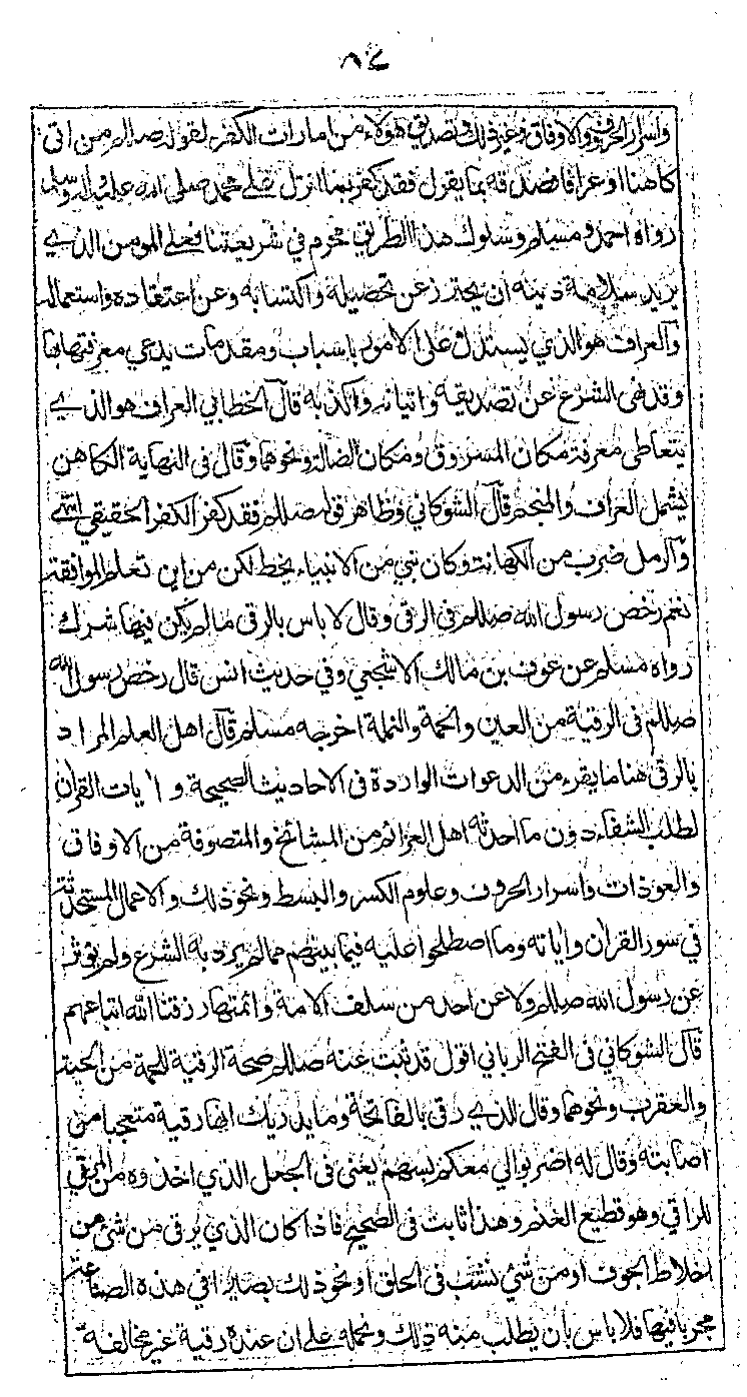 ٨٤
واسرار الحروف والاوفاق وغير ذلك وتصديق هؤلاء من امارات الكفر لقوله صلالم من اتى
كاهنا او عرافا فصدقه بما يقول فقد كفر بما انزل على محمد صلى الله عليه واله وسلم
رواه احمد ومسلم وسلوك هذا الطريق محرم في شريعتنا فعلى المومن الذي
يريد سلامة دينه ان يحترز عن تحصيله واكتسابه وعن اعتقاده واستعماله
والعراف هو الذي يستدل على الامور باسباب ومقدمات يدعي معرفتها بها
وقد نهى الشرع عن تصديقه واتيانه واكذبه قال الخطابي العراف هو الذي
يتعاطى معرفة مكان المسروق ومكان الضالة ونحوهما وقال في النهاية الكاهن
يشمل العراف والمنجم قال الشوكاني وظاهر قوله صلالم فقد كفر الكفر الحقيقي انتهى
والرمل ضرب من الكهانة وكان نبي من الانبياء يخط لكن من اين تعلم الموافقة
نعم رخص رسول الله صلالم في الرقى وقال لا باس بالرقى ما لم يكن فيها شرك
رواه مسلم عن عوف بن مالك الاشجعي وفي حديث انس قال رخص رسول الله
صلالم فى الرقية من العين والحمة والنملة اخرجه مسلم قال اهل العلم المراد
بالرقى هنا ما يقرء من الدعوات الواردة فى الاحاديث الصحيحة و ايات القران
لطلب الشفاء دون ما احدثه اهل العزائم من المشائخ والمتصوفة من الاوفاق
والعوذات واسرار الحروف وعلوم الكسر والبسط ونحو ذلك والاعمال المستحدثة
في سور القران واياته وما اصطلحوا عليه فيما بينهم مما لم يرد به الشرع ولم يوثر
عن رسول الله صلالم ولا عن احد من سلف الامة وائمتها رزقنا الله اتباعهم
قال الشوكاني فى الفتح الرباني اقول قد ثبت عنه صلالم صحة الرقية للحمة من الحية
والعقرب ونحوهما وقال للذي رقى بالفاتحة وما يدريك انها رقية متعجبا من
اصابته وقال له اضربوا لي معكم بسهم يعنى فى الجعل الذي اخذوه من المرقي
للراقي وهو قطيع الغنم وهذا ثابت فى الصحيح فاذا كان الذي يرقى من شئ من
اخلاط الجوف او من شئ نشب فى الحلق او نحو ذلك بصيرا في هذه الصناعة
مجربا فيها فلا باس بان يطلب منه ذلك ونحمله على ان عنده رقية غير مخالفة